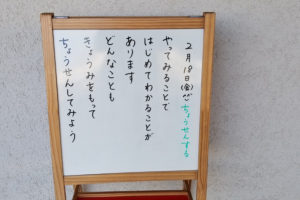 2月18日(金) ちょうせんする
やってみることで
はじめてわかることが
あります
どんなことも
きょうみをもって
ちょうせんしてみよう